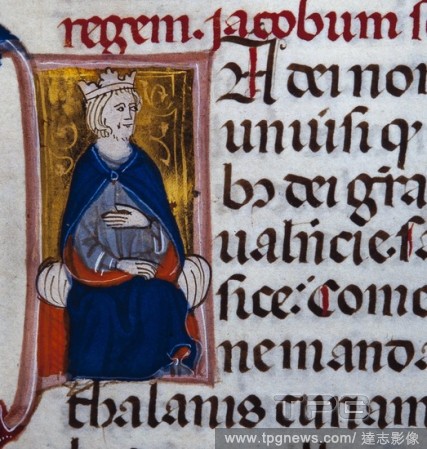 regem. jacobum s
A dei nor
unuisi q
bz dei gra
ualncie. sa
sice: Como
ne manda
thalanis cuitam
TPG
www.tpgnews.com/ 達志影像